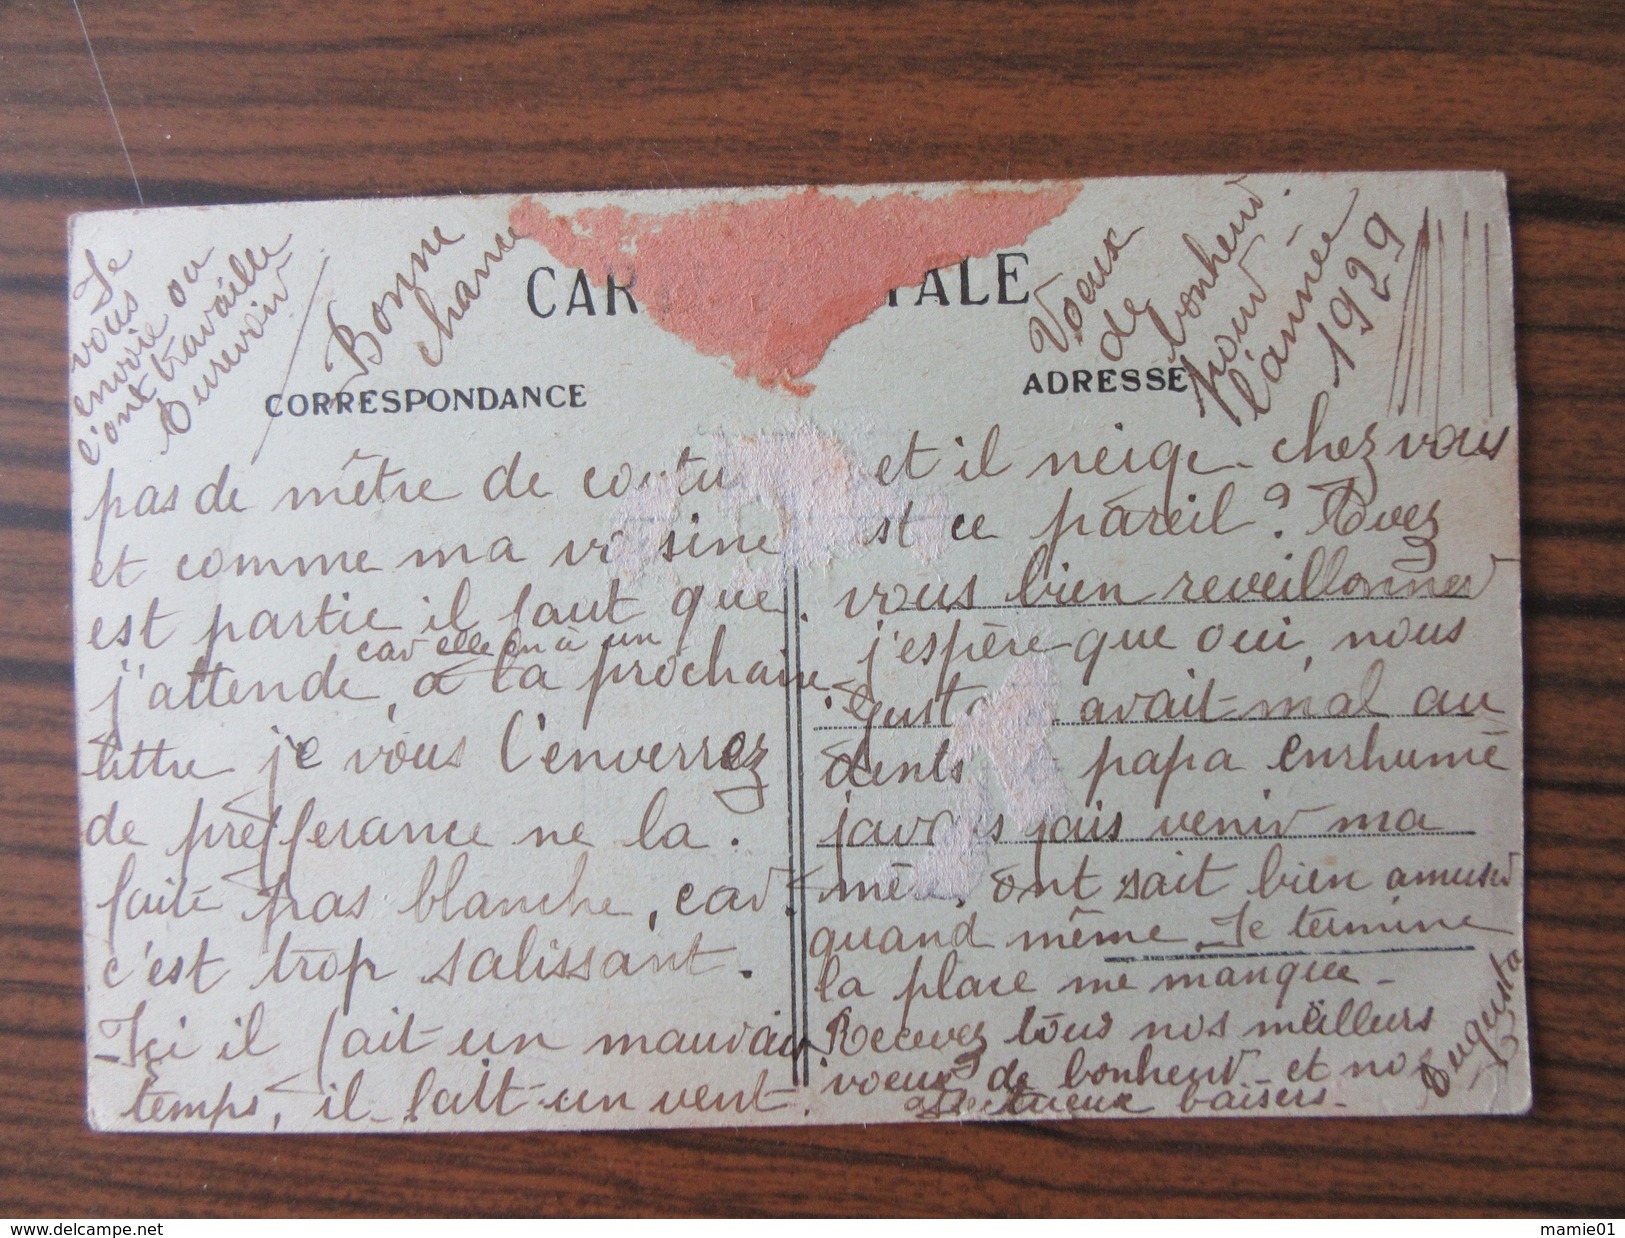 Je
vous
envoie ou
l'ont travaille
Aurevoir
Bonne
chance
CAR TALE
Voeux
de
bonheur
pour
l'année
1929
CORRESPONDANCE
ADRESSE
pas de mêtre de coutu
et comme ma voisine
est partie il faut que
car elle en à un
j'attende, a la prochaine
lettre je vous l'enverrez
de prefferance ne la.
faite pas blanche, car
c'est trop salissant.
Ici il fait un mauvais
temps, il fait un vent.
et il neige. chez vous
est ce pareil? Avez
vous bien reveillonner
j'espère que oui, nous
avait mal au
dents papa enrhumé
javais fais venir ma
ont sait bien amuser
quand même. Je termine
la place me manque -
Recevez tous nos meilleurs
voeux de bonheur et nos
affectueux baisers -
Augusta
mamie01